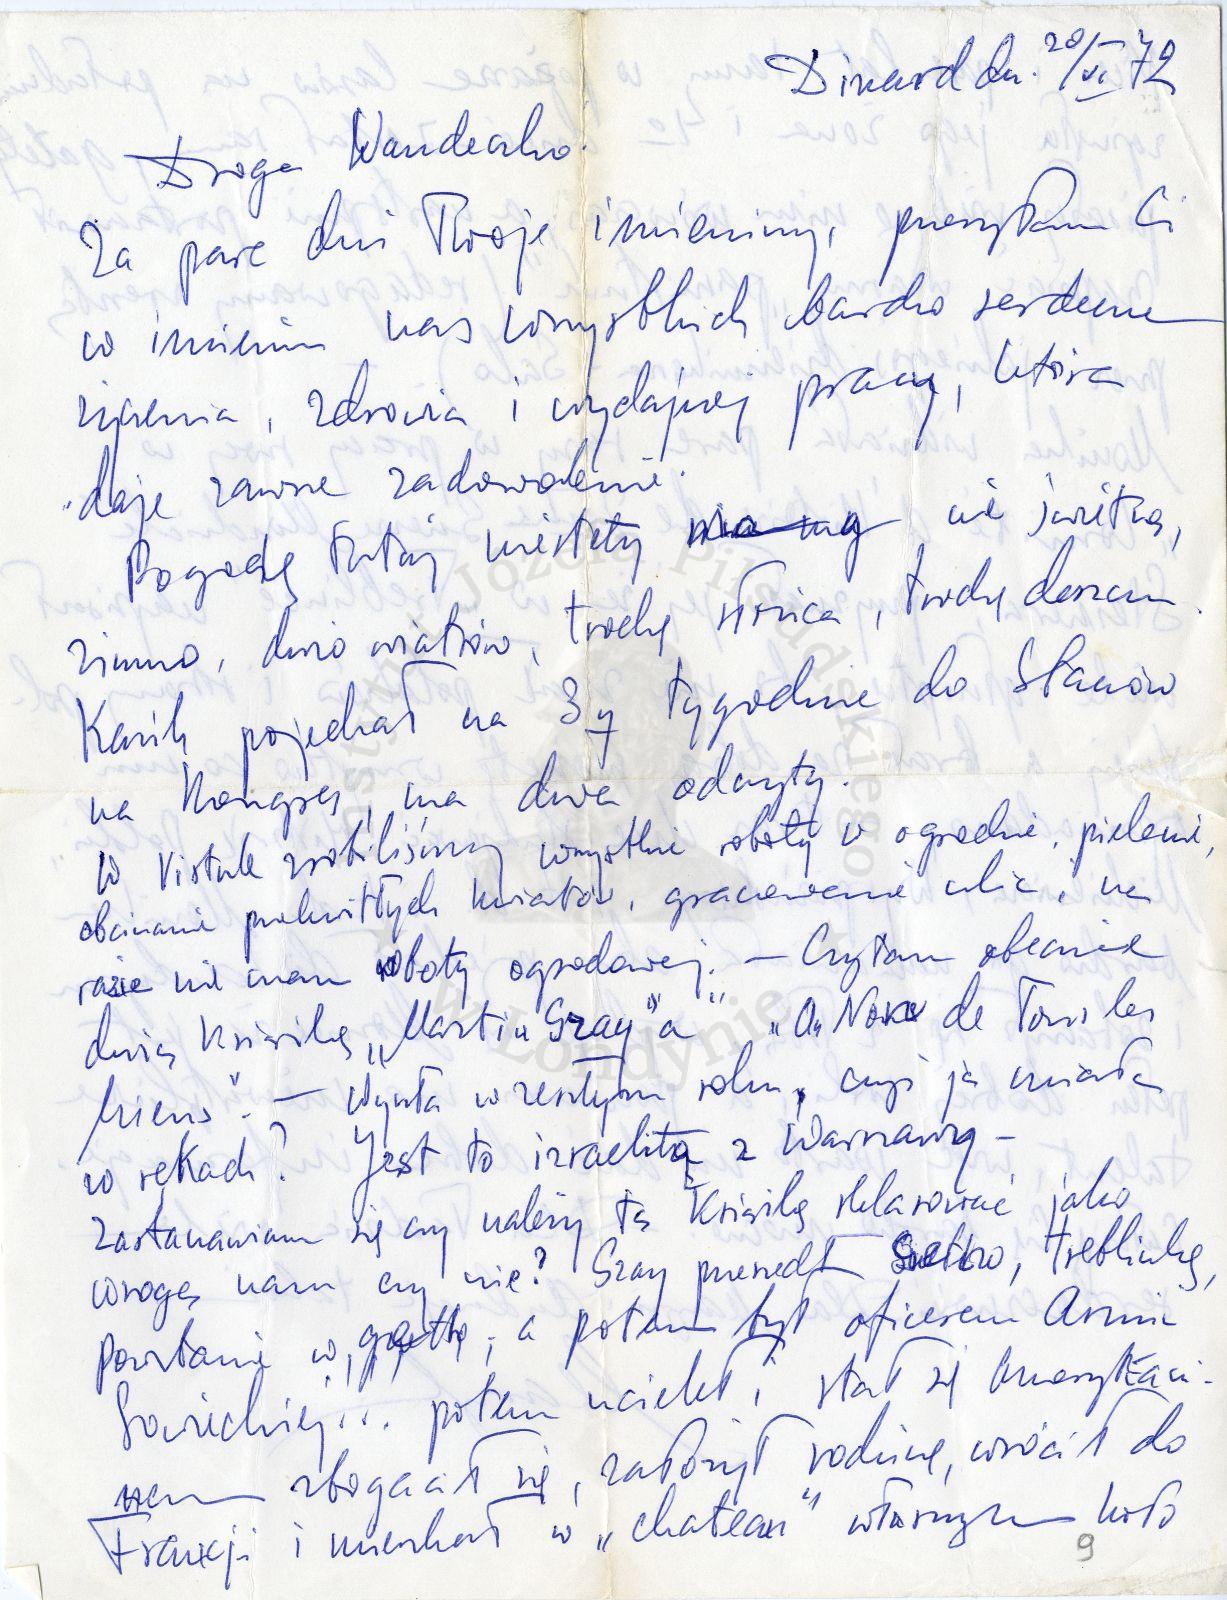 Dinard dn. 20/VI 72
Droga Wandeczko.
Za parę dni Twoje imieniny, przesyłam Ci
w imieniu nas wszystkich bardzo serdeczne
życzenia, zdrowia i wydajnej pracy, która
daje zawsze zadowolenie.
Pogodę tutaj niestety nie świetną,
zimno, dużo wiatrów, trochę słońca, trochę deszczu.
Kazik pojechał na 3y tygodnie do Stanów
na Kongres, ma dwa odczyty.
W Vistule zrobiliśmy wszystkie roboty w ogrodzie, pielenie,
obcinanie przekwitłych kwiatów, gracowanie ulic, na
razie nie mam roboty ogrodowej. — Czytam obecnie
dużą książkę „Martin Gray"a" „Au Nom de Tous les
Miens". — Wyszła w zeszłym roku, czyś ją miała
w rękach? Jest to izraelita z Warszawy —
zastanawiam się czy należy tą książkę sklasować jako
wrogą nam czy nie? Gray przeszedł Getto, Treblinkę,
powstanie w getto, a potem był oficerem Armii
Sowieckiej... potem uciekł i stał się Amerykani-
nem zbogacił się, założył rodzinę, wrócił do
Francji i mieszkał w „chateau" własnym koło
9
Instytut Józefa Piłsudskiego
w Londynie